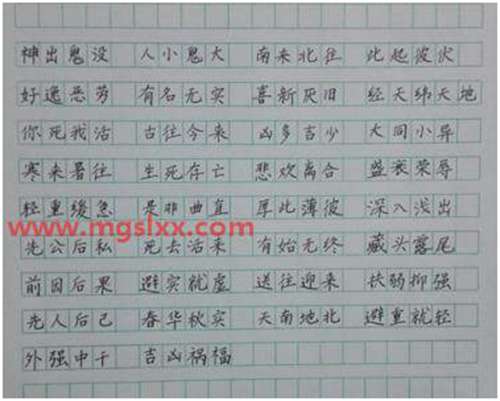 神出鬼没 人小鬼大 南来北往 此起彼伏
好逸恶劳 有名无实 喜新厌旧 经天纬天地
你死我活 古往今来 凶多吉少 大同小异
寒来暑往 生死存亡 悲欢离合 盛衰荣辱
轻重缓急 是非曲直 厚此薄彼 深入浅出
www.mgslxx.com
先公后私 死去活来 有始无终 藏头露尾
前因后果 避实就虚 送往迎来 扶弱抑强
先人后己 春华秋实 天南地北 避重就轻
外强中干 吉凶祸福